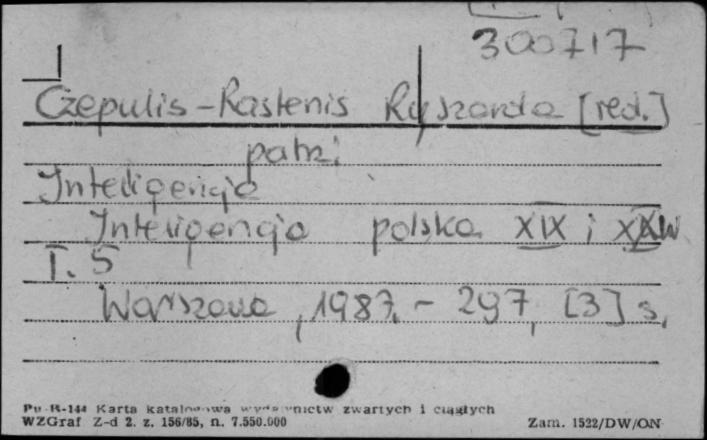 300717
Czepulis-Rastenis Ryszarda [red.]
patrz:
Inteligencja
Inteligencja polska XIX i XX w
T. 5
Warszawa, 1987. - 297, [3] s.
Pu-B-144 Karta katalogowa wydawnictw zwartych i ciągłych
WZGraf Z-d 2. z. 156/85, n. 7.550.000 Zam. 1522/DW/ON